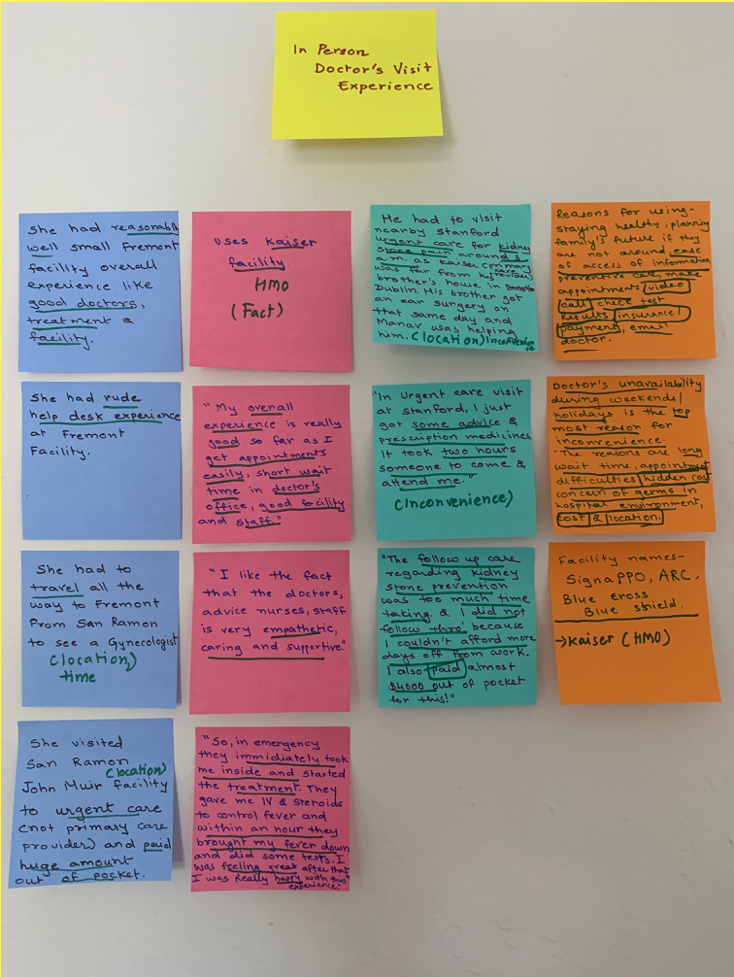 In Person
Doctor's Visit
Experience
She had reasonably
well small Fremont
facility overall
experience like
good doctors,
treatment &
facility.
She had rude
help desk experience
at Fremont
Facility.
She had to
travel all the
way to Fremont
From San Ramon
to see a Gynecologist
(location)
time
She visited
San Ramon
(location)
John Muir facility
to urgent care
(not primary care
provider) and paid
huge amount
out of pocket.
uses kaiser
facility.
HMO
(Fact)
"My overall
experience is really
good so far as I
get appointments
easily, short wait
time in doctor's
office, good facility
and staff."
"I like the fact
that the doctors,
advice nurses, staff
is very empathetic,
caring and supportive."
"So, in emergency
they immidiately took
me inside and started
the treatment. They
gave me IV & steroids
to control fever and
within an hour they
brought my fever down
and did some tests. I
was feeling great after that
I was Really happy with this
experience."
He had to visit
nearby Stanford
urgent care for kidney
stone pain around 3
a.m. as Kaiser (primary
care
was far from his provider)
brother's house in
Dublin. His brother got
an ear surgery on
that same day and
Manav was helping
him. (location) Inconvenience
"In Urgent care visit
at stanford, I just
got some advice &
prescription medicines.
It took two hours
someone to come &
attend me."
(Inconvenience)
"The follow up care
regarding kidney
stone prevention
was too much time
taking & I did not
follow thro' because
I couldn't afford more
days off from work.
I also paid almost
$4000 out of pocket
for this!"
Reasons for using-
staying healthy, planning
family's future if they
are not around, ease
of access of information
preventive care, make
appointments, video
call, check test
results, insurance/
payment, email
doctor.
Doctor's unavailability
during weekends/
holidays is the top
most reason for
inconvenience.
-The reasons are long
wait time, appointment
difficulties, hidden cost
concern of germs in
hospital environment,
cost & location.
Facility names-
Signa PPO, ARC,
Blue cross
Blue shield.
→Kaiser (HMO)